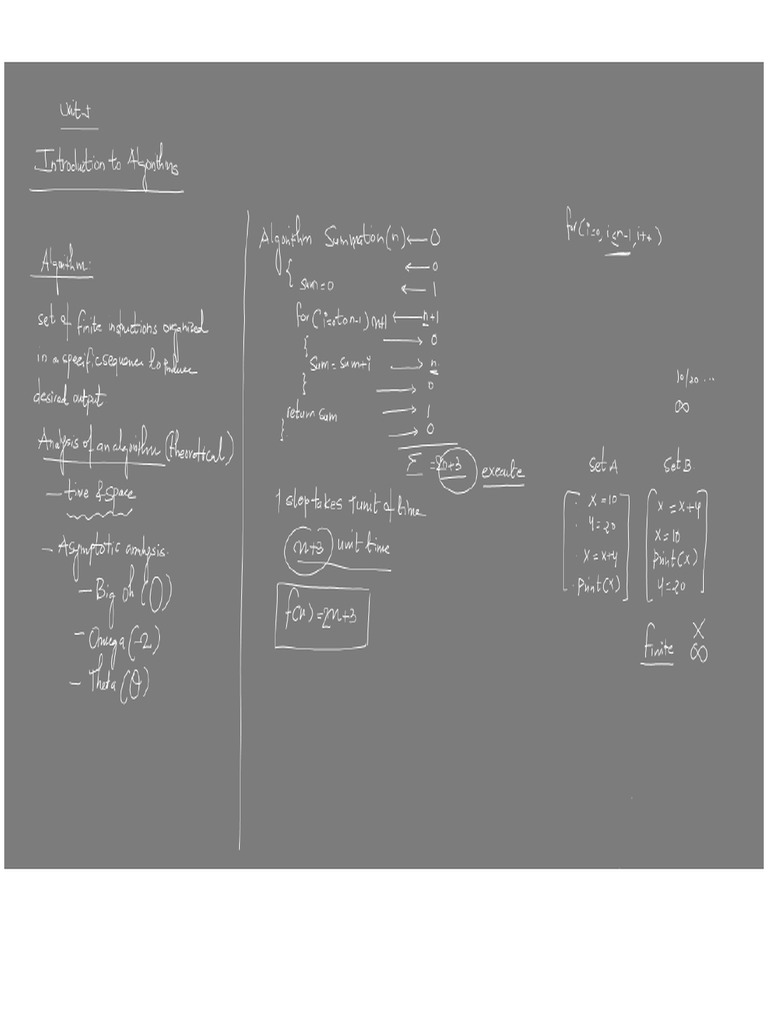 Unit-1
Introduction to Algorithms
Algorithm:
set of finite instructions organized
in a specific sequence to produce
desired output
Analysis of an algorithm (theoretical)
- time & space
- Asymptotic analysis.
- Big oh (O)
- Omega (Ω)
- Theta (θ)
Algorithm Summation(n) ← 0
{ ← 0
sum=0 ← 1
for(i=0 to n-1) n+1 ← n+1
{ → 0
sum=sum+i → n
} → 0
return sum → 1
} → 0
Σ = 2n+3 execute
1 step takes 1 unit of time
n+3 unit time
f(n)=2n+3
for(i=0, i≤n-1, i++)
10/20 ...
∞
set A
x=10
y=20
x=x+y
print(x)
set B
x=x+y
x=10
print(x)
y=20
X
finite ∞